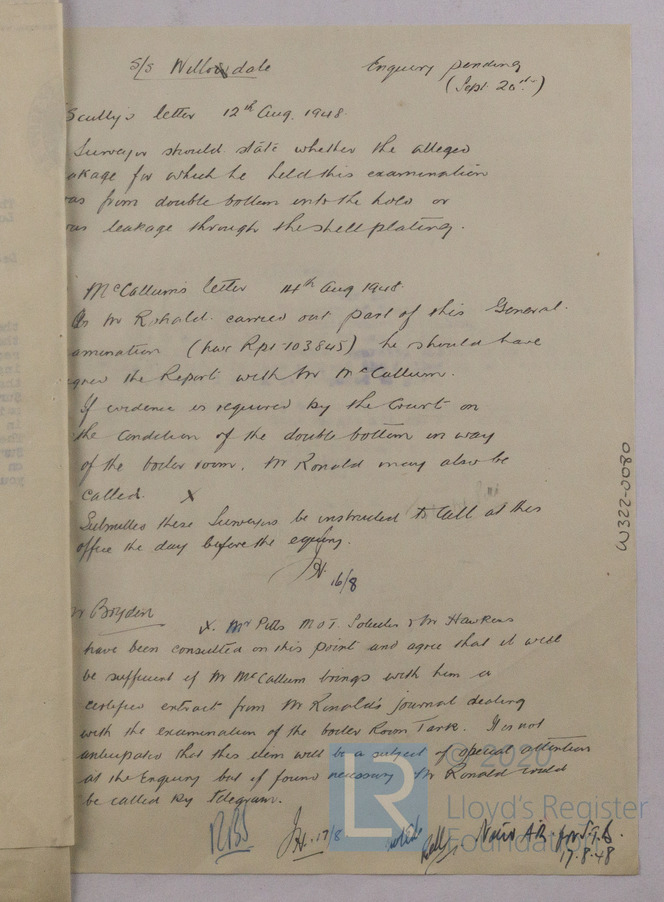 S/S Willowdale
Enquiry pending
(Sept. 20th)
Scully's letter 12th Aug. 1948.
Surveyor should state whether the alleged
akage for which he held this examination
as from double bottom into the hold or
as leakage through the shell plating.
McCallum's letter 14th Aug 1948.
As Mr Ronald. carried out part of this General.
amination (see Rpt 103845) he should have
agreed the Report with Mr McCallum.
If evidence is required by the Court on
the condition of the double bottom in way
of the boiler room, Mr Ronald may also be
called. X
Submitted these Surveyors be instructed to call at this
office the day before the enquiry.
JH. 16/8
Mr Boyden
X. Mr Pitts MOT. Solicitor & Mr Hawkins
have been consulted on this point and agree that it will
be sufficient if Mr McCallum brings with him a
certified extract from Mr Ronald's journal dealing
with the examination of the boiler Room Tank. It is not
anticipated that this item will be a subject of special attention
at the Enquiry but if found necessary Mr Ronald could
be called by telegram.
RBS
JH. 17/8
Noted
17.8.48
W322-0080
© 2020
LR
Lloyd's Register
Foundation